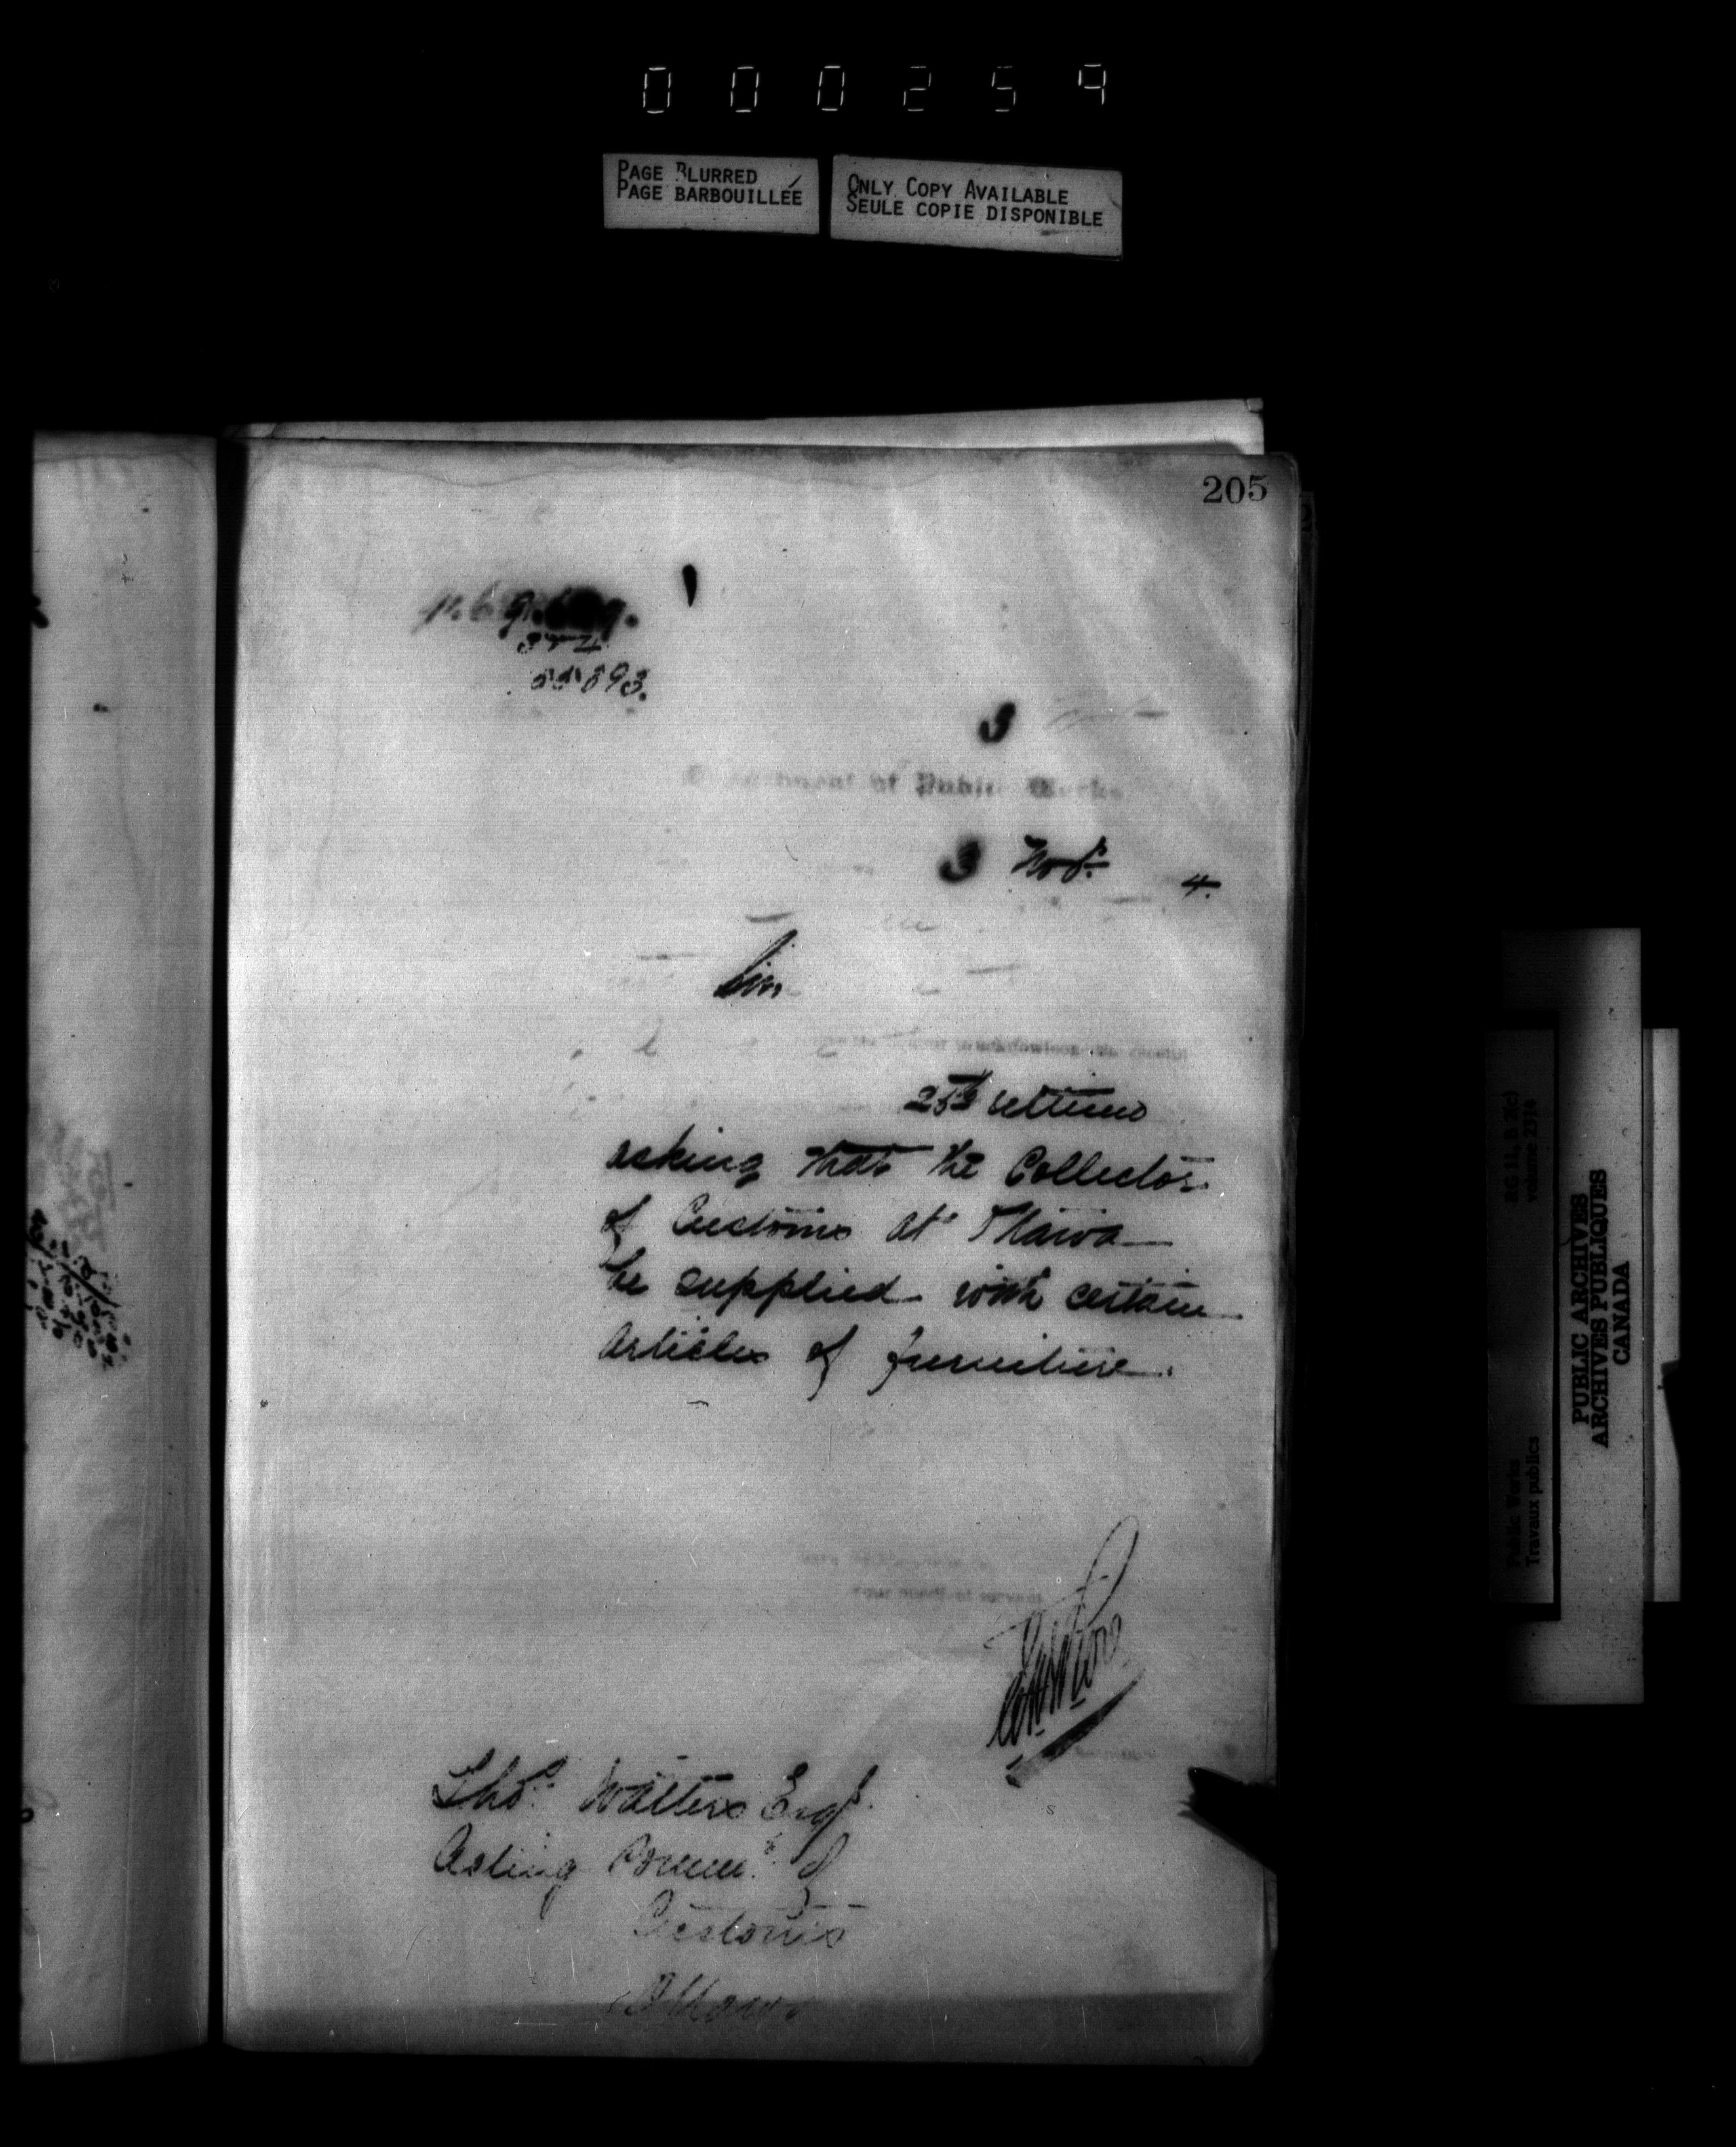 000259
PAGE BLURRED
PAGE BARBOUILLÉE
ONLY COPY AVAILABLE
SEULE COPIE DISPONIBLE
205
3
Department of Public Works
3 Novr. 4.
Sir,
25th ultimo
asking that the Collector
of Customs at Ottawa
be supplied with certain
articles of furniture.
Your obedient servant
Thos. Watters Esqr.
Acting Commr. of
Customs
Ottawa
RG 11, B 2(c)
volume 2314
Public Works
Travaux publics
PUBLIC ARCHIVES
ARCHIVES PUBLIQUES
CANADA